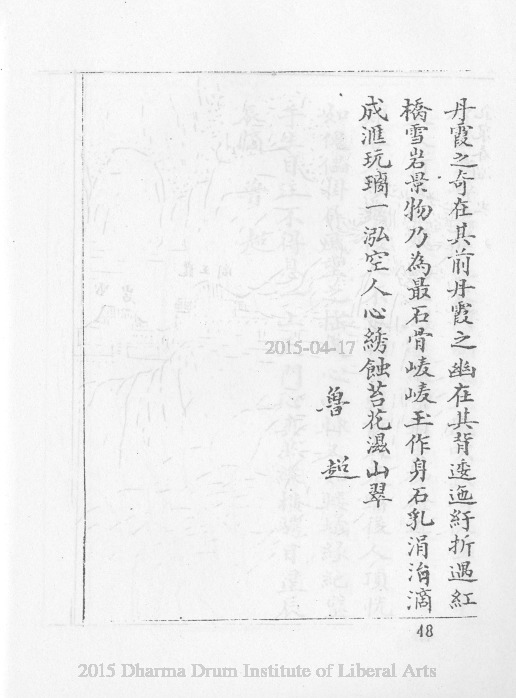 丹霞之奇在其前丹霞之幽在其背逶迤紆折過紅
橋雪岩景物乃為最石骨崚崚玉作身石乳涓涓滴
成滙玩璃一泓空人心綉蝕苔花濕山翠
魯超
2015-04-17
48
2015 Dharma Drum Institute of Liberal Arts